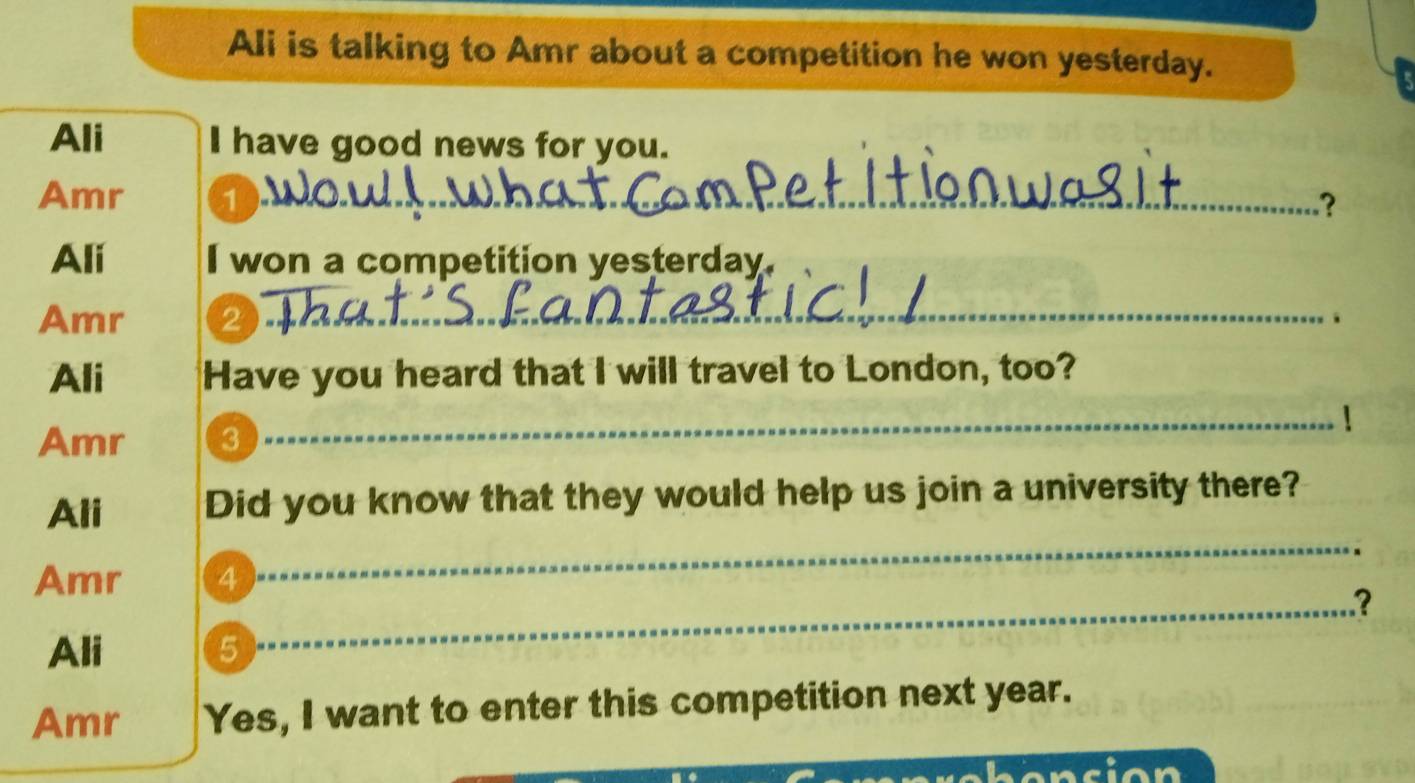 Ali is talking to Amr about a competition he won yesterday.
5
Ali I have good news for you.
Amr 1 Wow! what competition was it ?
Ali I won a competition yesterday.
Amr 2 That's fantastic! .
Ali Have you heard that I will travel to London, too?
Amr 3 !
Ali Did you know that they would help us join a university there?
Amr 4 .
Ali 5 ?
Amr Yes, I want to enter this competition next year.